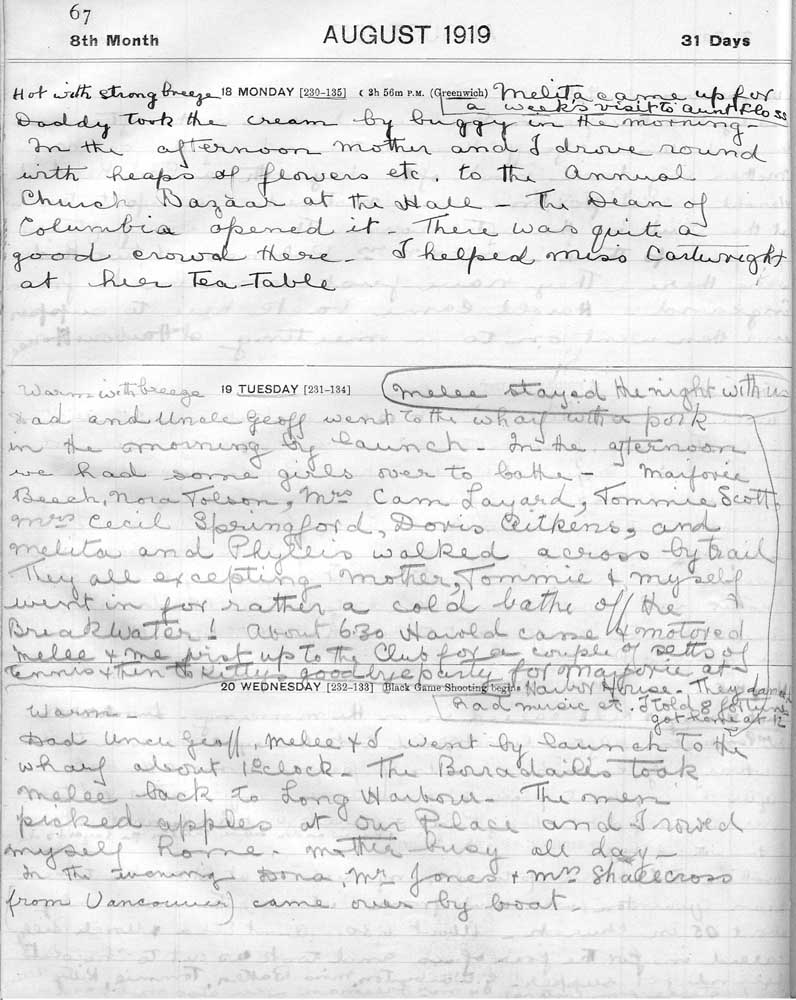 67
8th Month AUGUST 1919 31 Days
Hot with strong breeze 18 MONDAY [230-135] ☾ 3h 56m P.M. (Greenwich) Melita came up for
a week's visit to Aunt Floss
Daddy took the cream by buggy in the morning -
In the afternoon Mother and I drove round
with heaps of flowers etc. to the Annual
Church Bazaar at the Hall - The Dean of
Columbia opened it - There was quite a
good crowd there - I helped Miss Cartwright
at her Tea-Table
Warm with breeze 19 TUESDAY [231-134] Melee stayed the night with us
Dad and Uncle Geoff went to the wharf with a pork
in the morning by launch - In the afternoon
we had some girls over to bathe - Marjorie
Beech, Nora Tolson, Mrs Cam Layard, Tommie Scott,
Mrs Cecil Springford, Doris Aitkens, and
Melita and Phyllis walked across by trail
They all excepting Mother, Tommie & myself
went in for rather a cold bathe off the
Breakwater! About 6.30 Harold came & motored
Melee & me first up to the Club for a couple of setts of
tennis & then to Kitty's goodbye party for Marjorie at
20 WEDNESDAY [232-133] Black Game Shooting begins Harbor House. They danced
had music etc. I told 8 fortunes
got home at 12
Warm -
Dad Uncle Geoff, Melee & I went by launch to the
wharf about 1 o'clock - The Borradailes took
Melee back to Long Harbour - The men
picked apples at our Place and I rowed
myself home - Mother busy all day -
In the evening Dona, Mr Jones & Mrs Shallcross
from Vancouver) came over by boat -